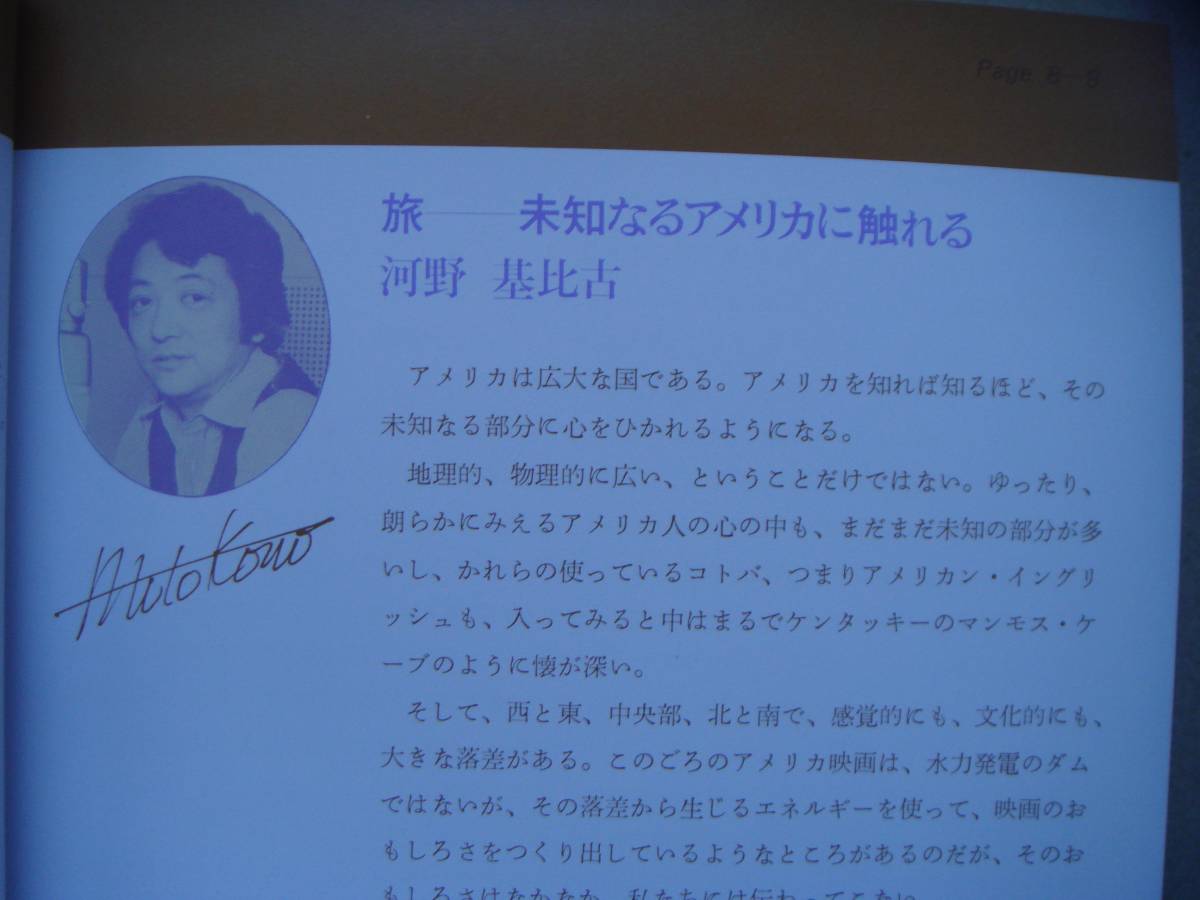 Page 8-9
旅――未知なるアメリカに触れる
河野 基比古
アメリカは広大な国である。アメリカを知れば知るほど、その
未知なる部分に心をひかれるようになる。
地理的、物理的に広い、ということだけではない。ゆったり、
朗らかにみえるアメリカ人の心の中も、まだまだ未知の部分が多
いし、かれらの使っているコトバ、つまりアメリカン・イングリ
ッシュも、入ってみると中はまるでケンタッキーのマンモス・ケ
ーブのように懐が深い。
そして、西と東、中央部、北と南で、感覚的にも、文化的にも、
大きな落差がある。このごろのアメリカ映画は、水力発電のダム
ではないが、その落差から生じるエネルギーを使って、映画のお
もしろさをつくり出しているようなところがあるのだが、そのお
もしろさはなかなか、私たちには伝わってこない